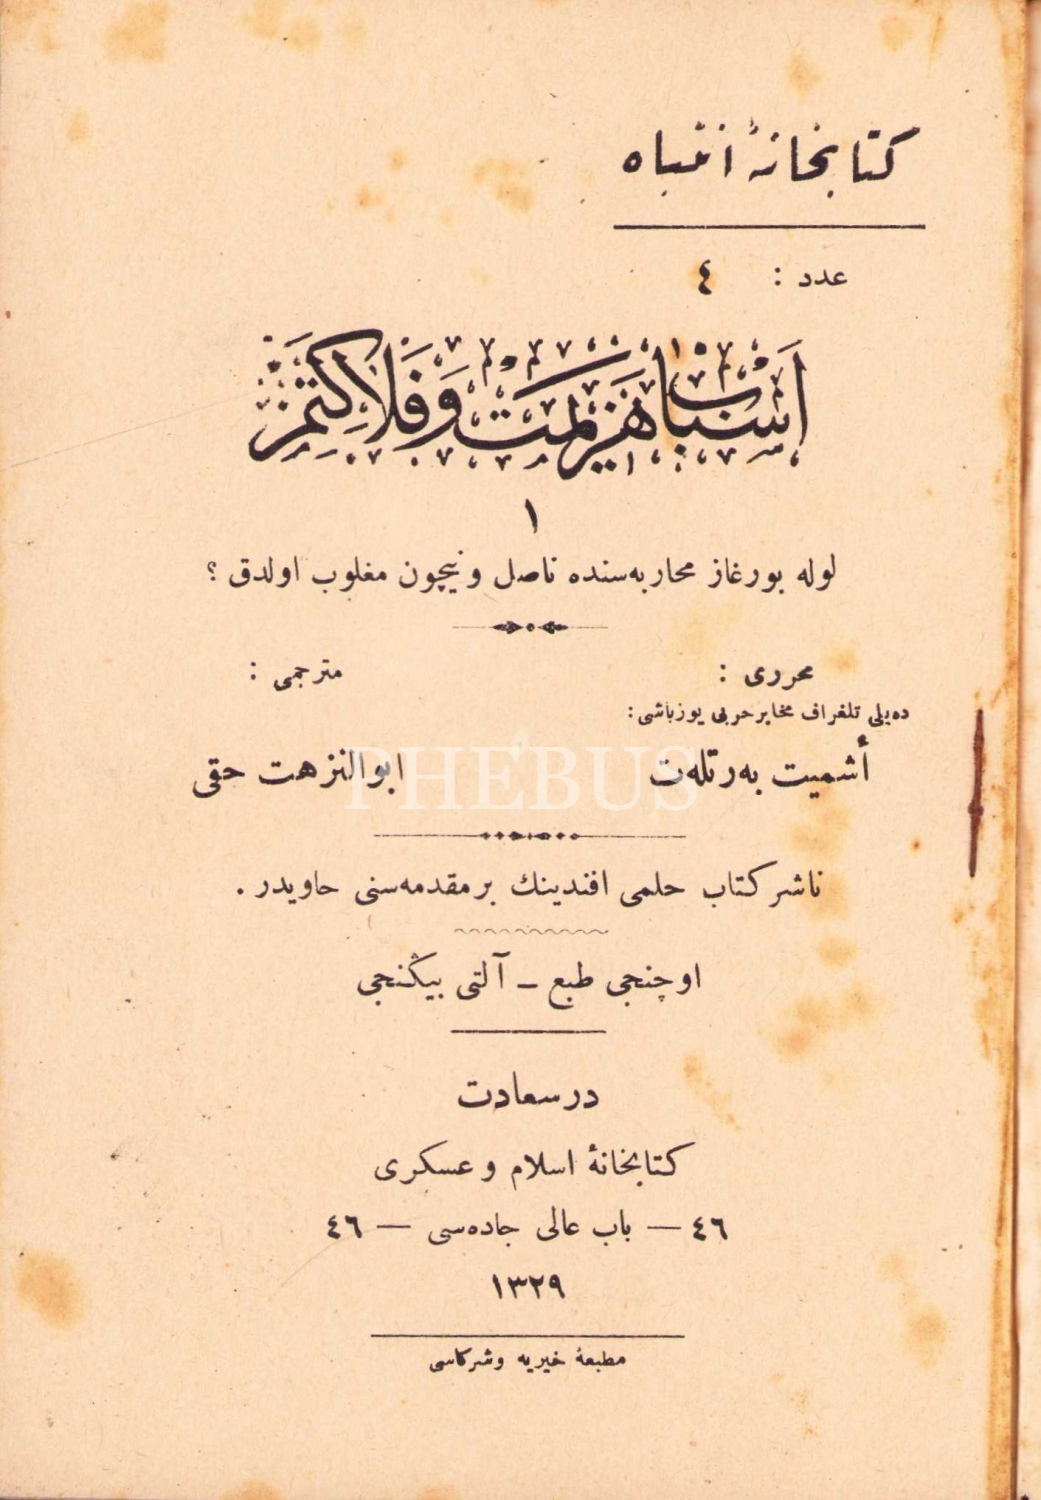 كتابخانۀ انتباه
عدد : ٤
أسباب هزيمت و فلاكتمز
١
لوله بورغاز محاربه‌سنده ناصل ونيچون مغلوب اولدق ؟
محرری : مترجمی :
ده‌يلی تلغراف مخابر حربی يوزباشی :
أشميت به‌رتله‌ت ابوالنزهت حقی
PHEBUS
ناشر كتاب حلمی افندينك بر مقدمه‌سنی حاويدر .
اوچنجی طبع – آلتی بيڭنجی
درسعادت
كتابخانۀ اسلام و عسكری
٤٦ — باب عالی جاده‌سی — ٤٦
١٣٢٩
مطبعۀ خيريه وشركاسی